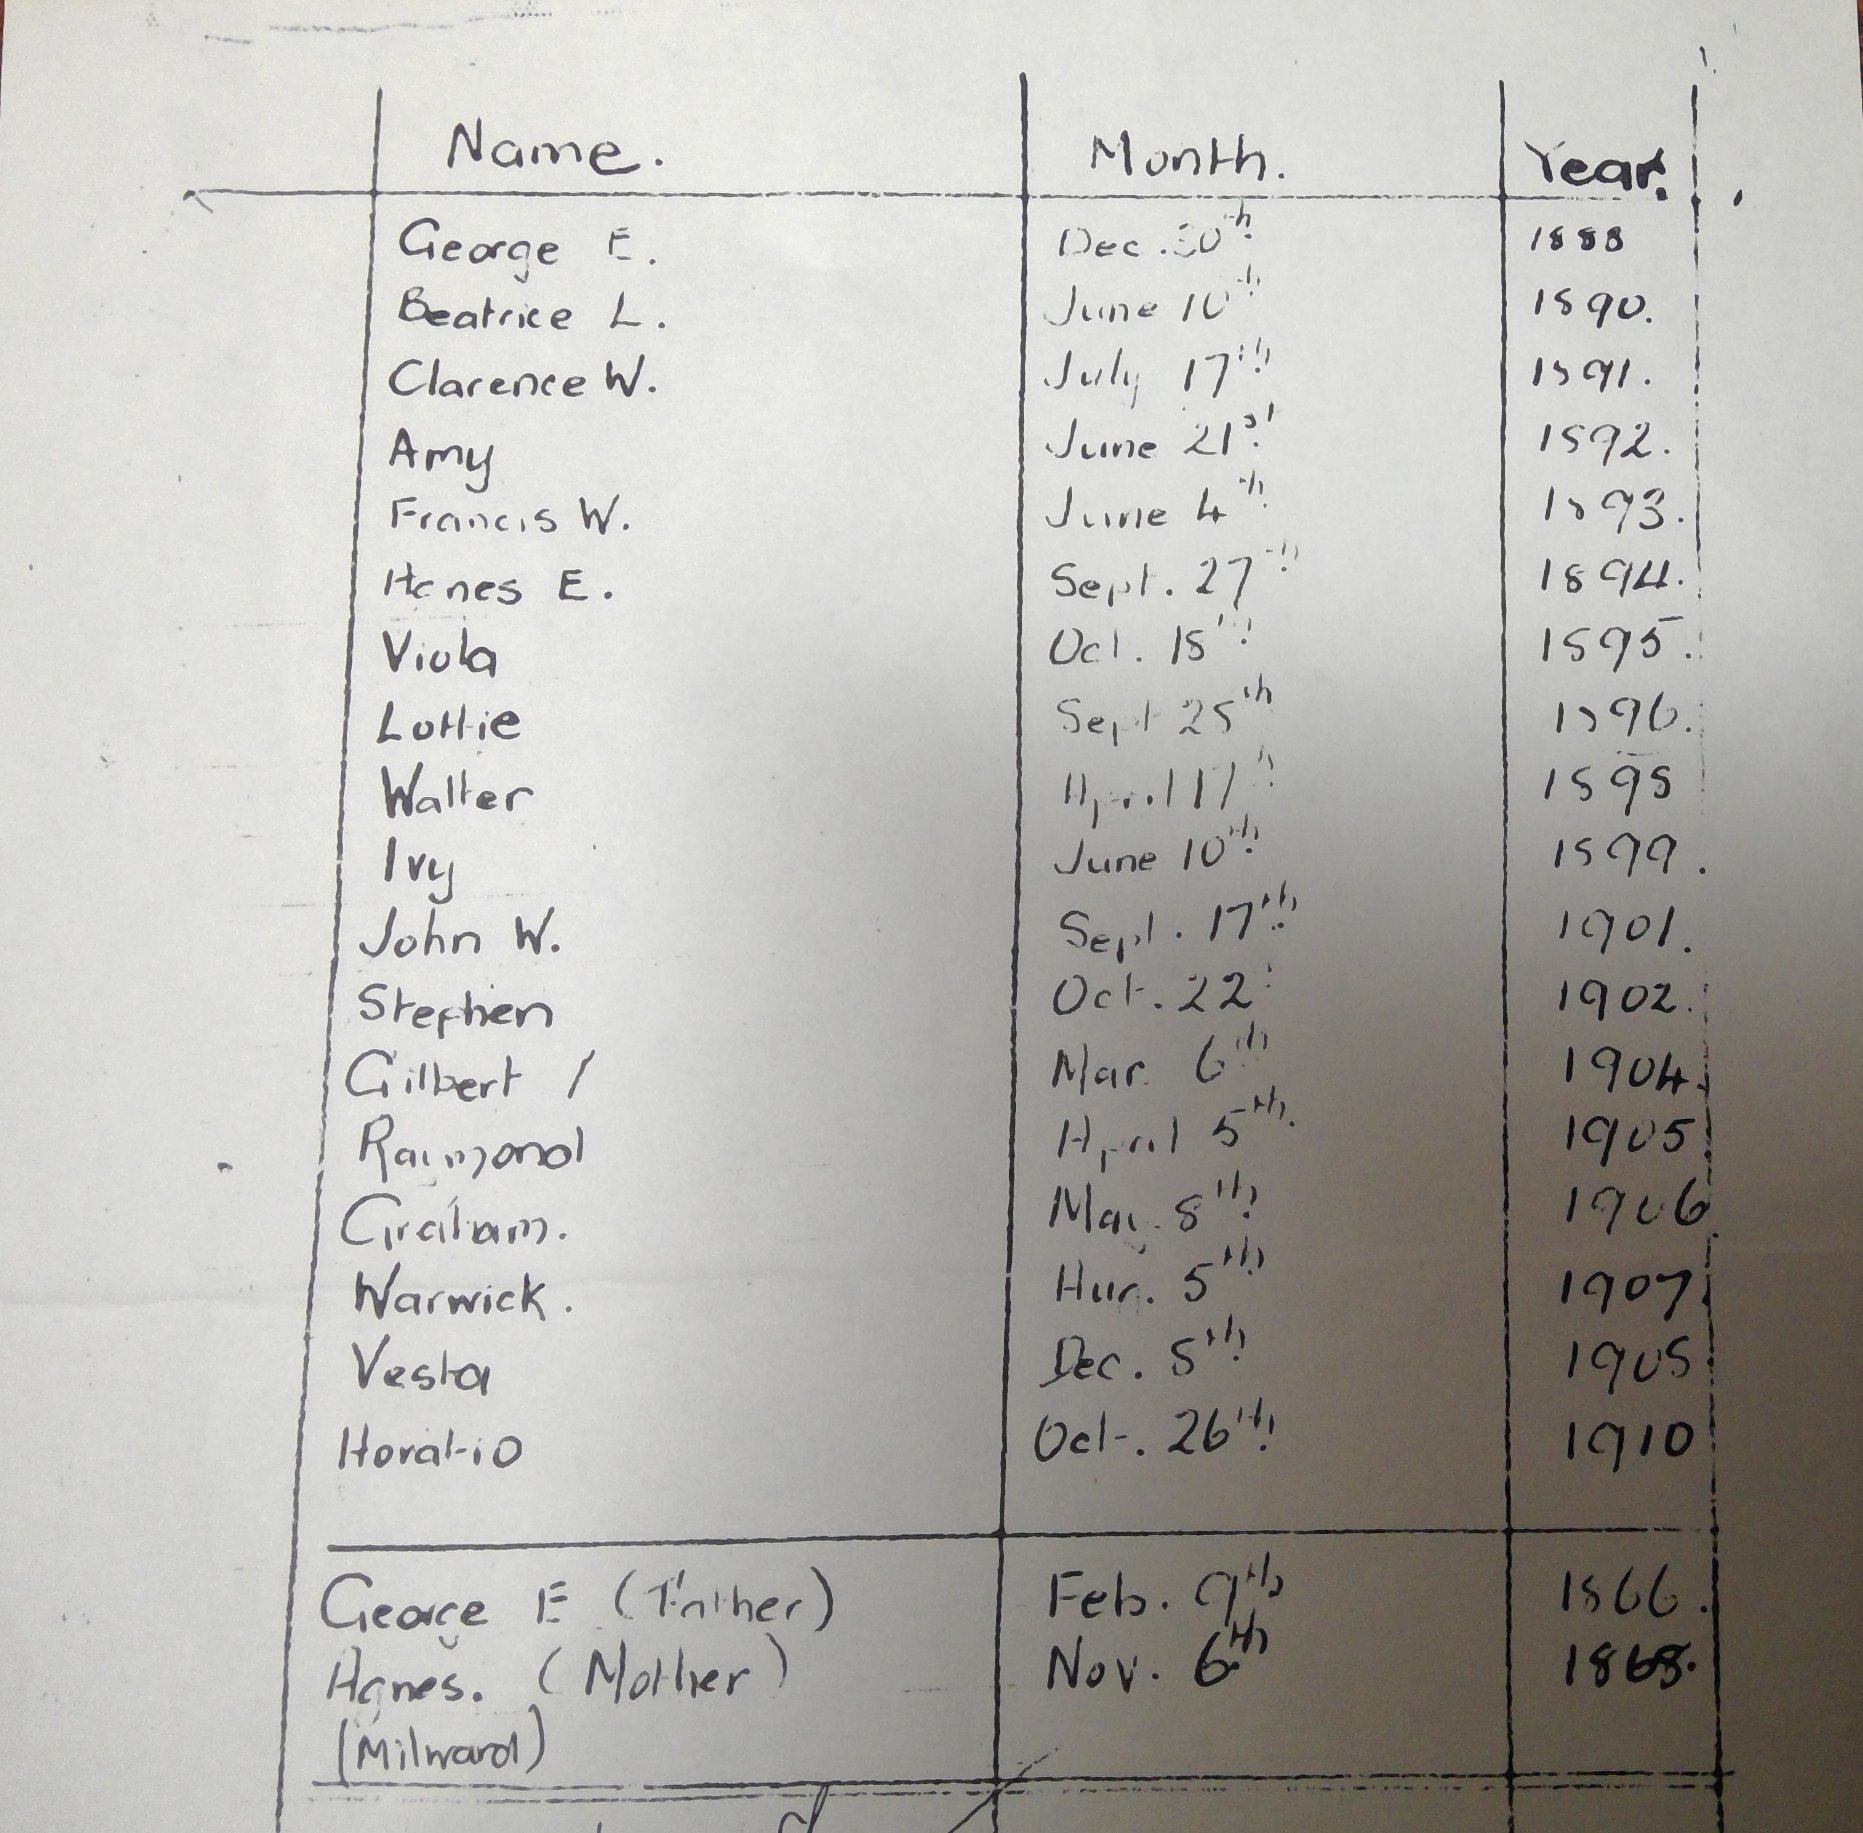 Name. Month. Year.
George E. Dec. 30th 1888
Beatrice L. June 10th 1890.
Clarence W. July 17th 1891.
Amy June 21st 1892.
Francis W. June 4th 1893.
Agnes E. Sept. 27th 1894.
Viola Oct. 18th 1895.
Lottie Sept 25th 1896.
Walter April 17th 1898
Ivy June 10th 1899.
John W. Sept. 17th 1901.
Stephen Oct. 22 1902.
Gilbert / Mar 6th 1904.
Raymond April 5th 1905
Graham. May 8th 1906
Warwick. Aug. 5th 1907
Vesta Dec. 8th 1908
Horatio Oct. 26th 1910
George E (Father) Feb. 9th 1866.
Agnes. (Mother) Nov. 6th 1868.
(Milward)